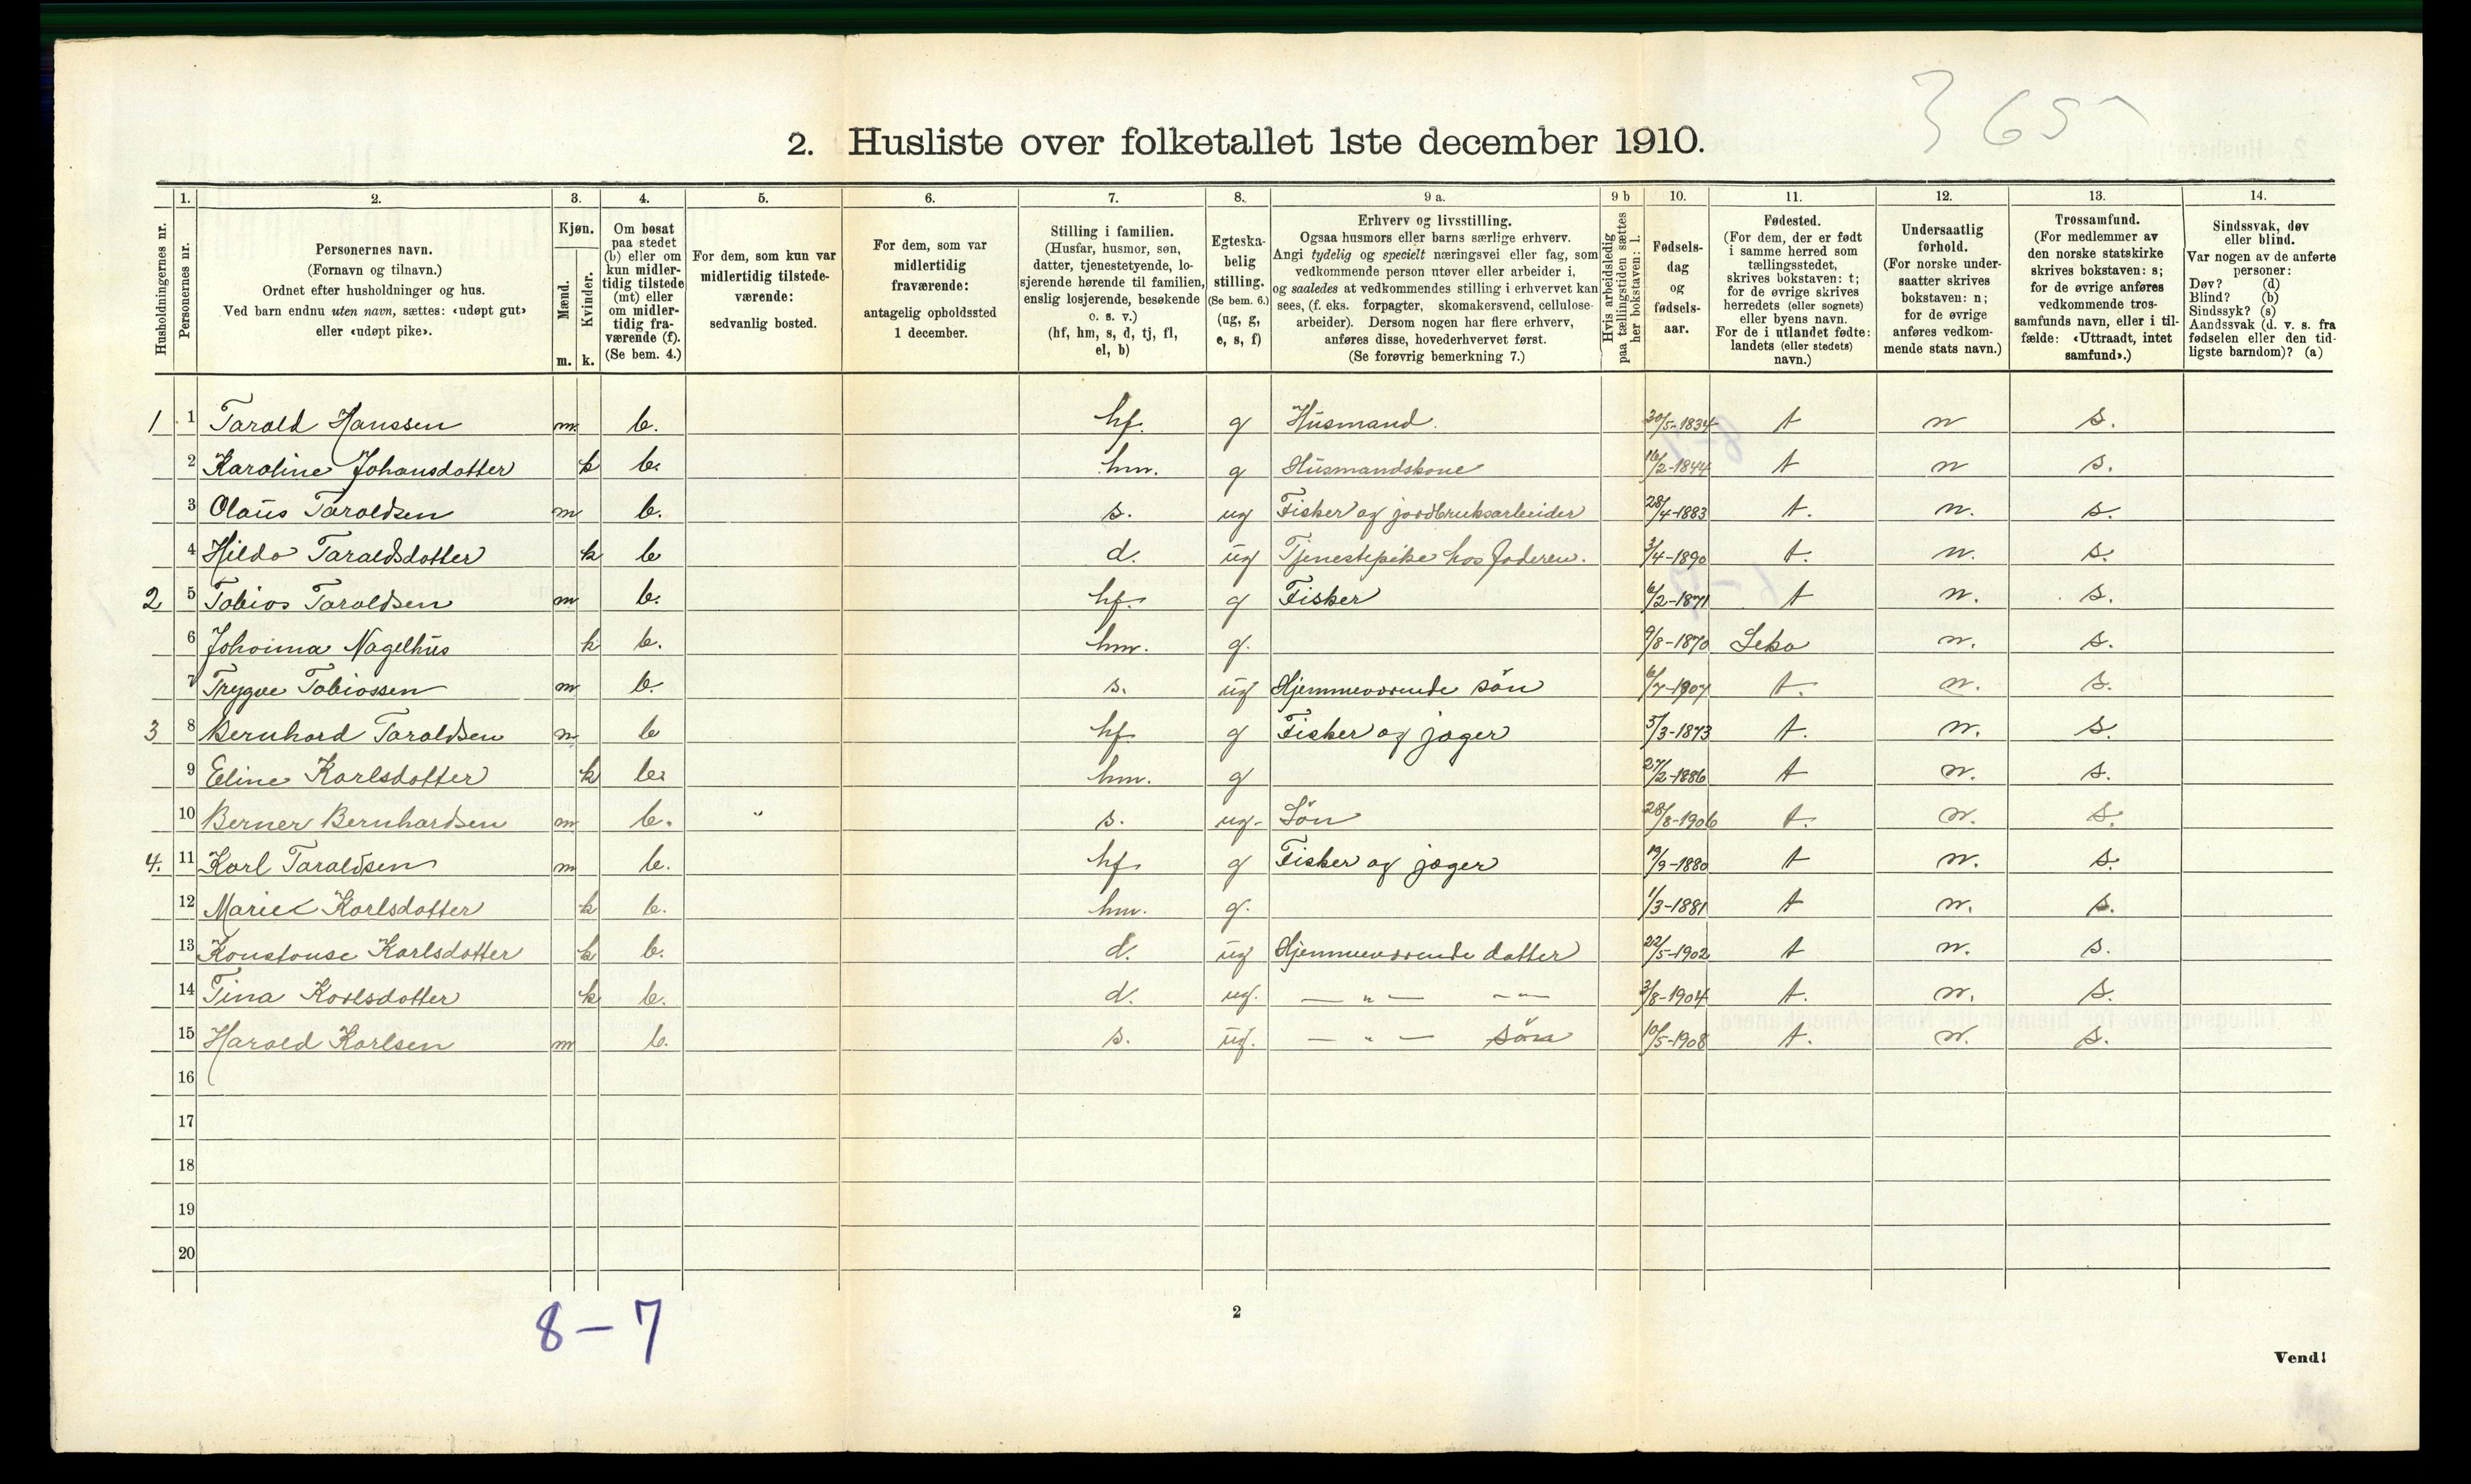 3 65
2. Husliste over folketallet 1ste december 1910.
Husholdningernes nr.
1. Personernes nr.
2. Personernes navn. (Fornavn og tilnavn.) Ordnet efter husholdninger og hus. Ved barn endnu uten navn, sættes: «udøpt gut» eller «udøpt pike».
3. Kjøn. Mænd. m. Kvinder. k.
4. Om bosat paa stedet (b) eller om kun midlertidig tilstede (mt) eller om midlertidig fraværende (f). (Se bem. 4.)
5. For dem, som kun var midlertidig tilstedeværende: sedvanlig bosted.
6. For dem, som var midlertidig fraværende: antagelig opholdssted 1 december.
7. Stilling i familien. (Husfar, husmor, søn, datter, tjenestetyende, losjerende hørende til familien, enslig losjerende, besøkende o. s. v.) (hf, hm, s, d, tj, fl, el, b)
8. Egteskabelig stilling. (Se bem. 6.) (ug, g, e, s, f)
9 a. Erhverv og livsstilling. Ogsaa husmors eller barns særlige erhverv. Angi tydelig og specielt næringsvei eller fag, som vedkommende person utøver eller arbeider i, og saaledes at vedkommendes stilling i erhvervet kan sees, (f. eks. forpagter, skomakersvend, cellulosearbeider). Dersom nogen har flere erhverv, anføres disse, hovederhvervet først. (Se forøvrig bemerkning 7.)
9 b Hvis arbeidsledig paa tællingstiden sættes her bokstaven: l.
10. Fødselsdag og fødselsaar.
11. Fødested. (For dem, der er født i samme herred som tællingsstedet, skrives bokstaven: t; for de øvrige skrives herredets (eller sognets) eller byens navn. For de i utlandet fødte: landets (eller stedets) navn.)
12. Undersaatlig forhold. (For norske undersaatter skrives bokstaven: n; for de øvrige anføres vedkommende stats navn.)
13. Trossamfund. (For medlemmer av den norske statskirke skrives bokstaven: s; for de øvrige anføres vedkommende trossamfunds navn, eller i tilfælde: «Uttraadt, intet samfund».)
14. Sindssvak, døv eller blind. Var nogen av de anførte personer: Døv? (d) Blind? (b) Sindssyk? (s) Aandssvak (d. v. s. fra fødselen eller den tidligste barndom)? (a)
1 1 Tarald Hanssen m b. hf. g Husmand. 30/5-1834 t n s.
2 Karoline Johansdotter k b. hm. g Husmandskone 16/2-1844 t n s.
3 Olaus Taraldsen m b. s. ug Fisker og jordbruksarbeider 28/4-1883 t. n. s.
4 Hilda Taraldsdotter k b d. ug Tjenestepike hos faderen. 3/4-1890 t. n. s.
2 5 Tobias Taraldsen m b. hf. g Fisker 6/2-1871 t n. s.
6 Johanna Nagelhus k b. hm. g. 9/8-1870 Leka n. s.
7 Trygve Tobiassen m b. s. ug Hjemmeværende søn 6/7-1907 t. n. s.
3 8 Bernhard Taraldsen m b hf. g Fisker og jæger 5/3-1873 t. n. s.
9 Eline Karlsdotter k b. hm. g 27/2-1886 t n. s.
10 Berner Bernhardsen m b. " s. ug. Søn 28/8-1906 t. n. s.
4. 11 Karl Taraldsen m b. hf. g Fisker og jæger 19/9-1880 t n. s.
12 Marie Karlsdotter k b. hm. g. 1/3-1881 t n. s.
13 Konstanse Karlsdotter k b. d. ug Hjemmeværende datter 22/5-1902 t n. s.
14 Tina Karlsdotter k b. d. ug. — " — — " — 3/8-1904 t. n. s.
15 Harald Karlsen m b. s. ug. — " — søn 10/5-1908 t. n. s.
16
17
18
19
20
8-7
2
Vend!